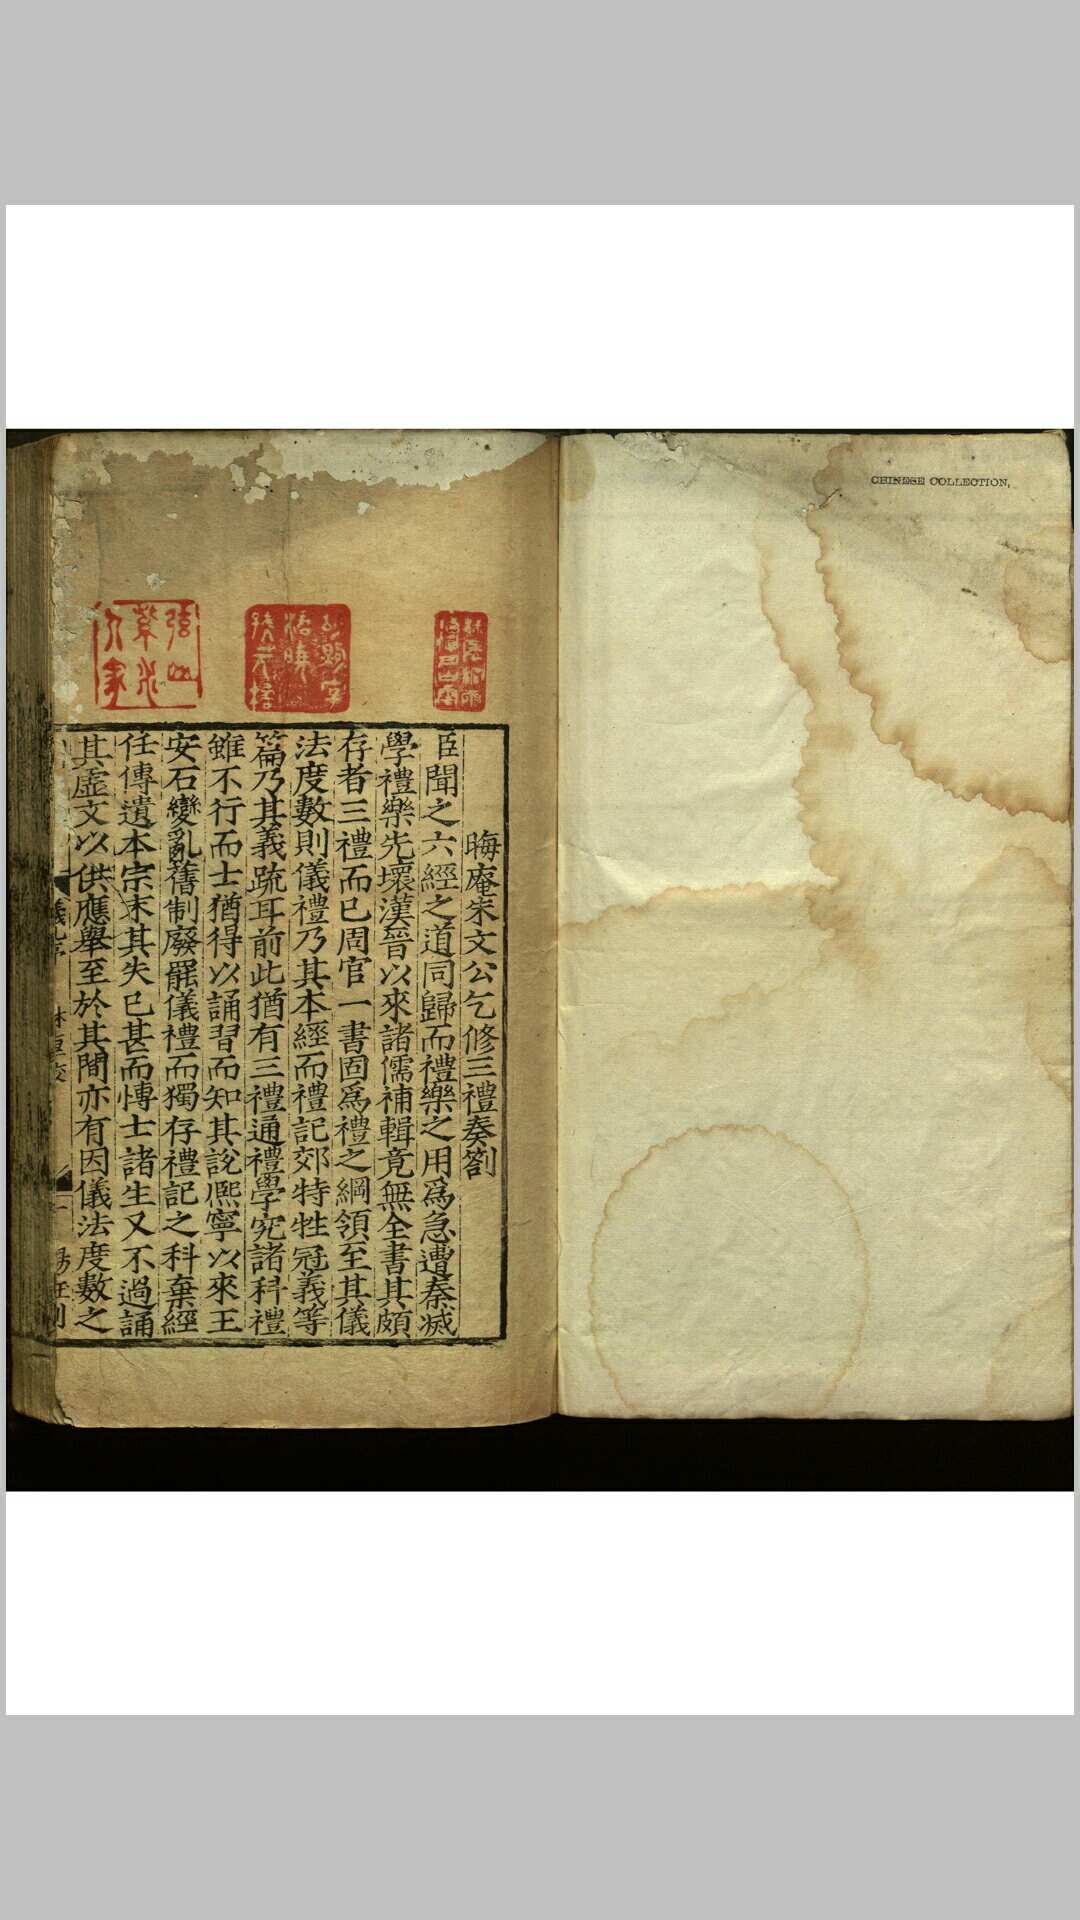 CHINESE COLLECTION,
晦庵朱文公乞修三禮奏劄
臣聞之六經之道同歸而禮樂之用爲急遭秦滅
學禮樂先壞漢晉以來諸儒補輯竟無全書其頗
存者三禮而已周官一書固爲禮之綱領至其儀
法度數則儀禮乃其本經而禮記郊特牲冠義等
篇乃其義疏耳前此猶有三禮通禮學究諸科禮
雖不行而士猶得以誦習而知其說熈寧以來王
安石變亂舊制廢罷儀禮而獨存禮記之科棄經
任傳遺本宗末其失已甚而愽士諸生又不過誦
其虛文以供應舉至於其間亦有因儀法度數之